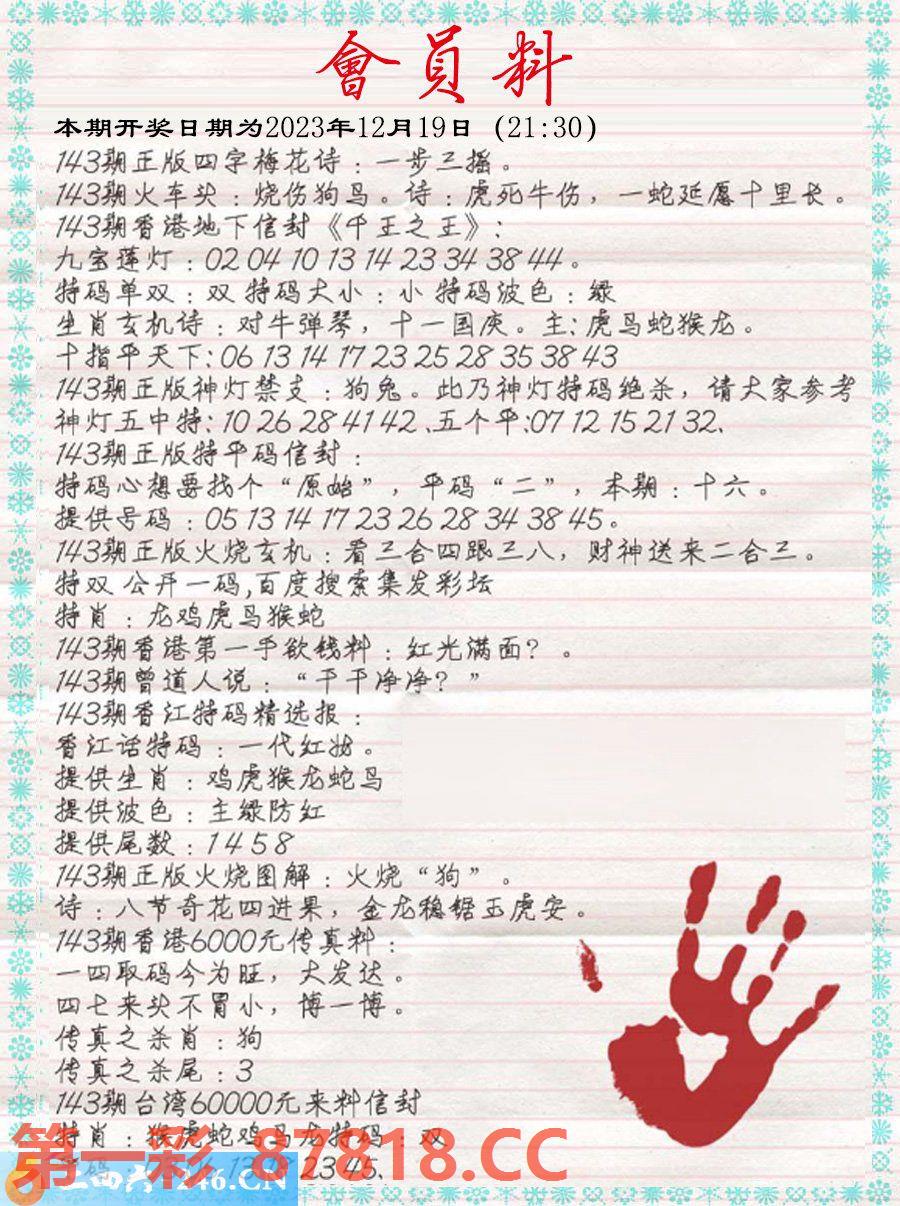 會員料
本期开奖日期为2023年12月19日 (21:30)
143期正版四字梅花诗：一步三摇。
143期火车头：烧伤狗鸟。诗：虎死牛伤，一蛇延愿十里长。
143期香港地下信封《千王之王》：
九宝莲灯：02 04 10 13 14 23 34 38 44。
特码单双：双 特码大小：小 特码波色：绿
生肖玄机诗：对牛弹琴，十一国庆。主：虎马蛇猴龙。
十指平天下：06 13 14 17 23 25 28 35 38 43
143期正版神灯禁支：狗兔。此乃神灯特码绝杀，请大家参考
神灯五中特：10 26 28 41 42、五个平：07 12 15 21 32、
143期正版特平码信封：
特码心想要找个“原始”，平码“二”，本期：十六。
提供号码：05 13 14 17 23 26 28 34 38 45。
143期正版火烧玄机：看三合四跟三八，财神送来二合三。
特双 公开一码,百度搜索集发彩坛
特肖：龙鸡虎马猴蛇
143期香港第一手欲钱料：红光满面？。
143期曾道人说：“干干净净？”
143期香江特码精选报：
香江话特码：一代红妆。
提供生肖：鸡虎猴龙蛇马
提供波色：主绿防红
提供尾数：1 4 5 8
143期正版火烧图解：火烧“狗”。
诗：八节奇花四进果，金龙稳锯玉虎安。
143期香港6000元传真料：
一四取码今为旺，大发达。
四七来头不冒小，博一博。
传真之杀肖：狗
传真之杀尾：3
143期台湾60000元来料信封
特肖：猴虎蛇鸡马龙特码：双
码：13 18 23 45、
第一彩 87818.CC
二四六 246.CN